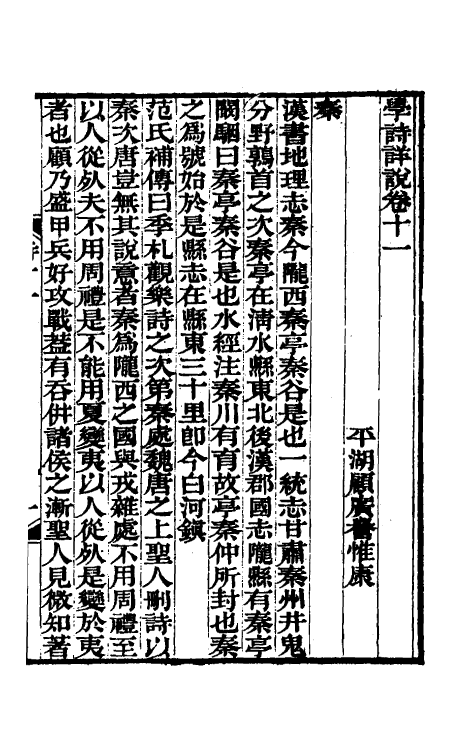 學詩詳說卷十一
平湖顧廣譽惟康
秦
漢書地理志秦今隴西秦亭秦谷是也一統志甘肅秦州井鬼
分野鶉首之次秦亭在清水縣東北後漢郡國志隴縣有秦亭
闞駰曰秦亭秦谷是也水經注秦川有育故亭秦仲所封也秦
之為號始於是縣志在縣東三十里即今白河鎮
范氏補傳曰季札觀樂詩之次第秦處魏唐之上聖人刪詩以
秦次唐豈無其說意者秦為隴西之國與戎雜處不用周禮至
以人從死夫不用周禮是不能用夏變夷以人從死是變於夷
者也顧乃盛甲兵好攻戰葢有吞併諸侯之漸聖人見微知著